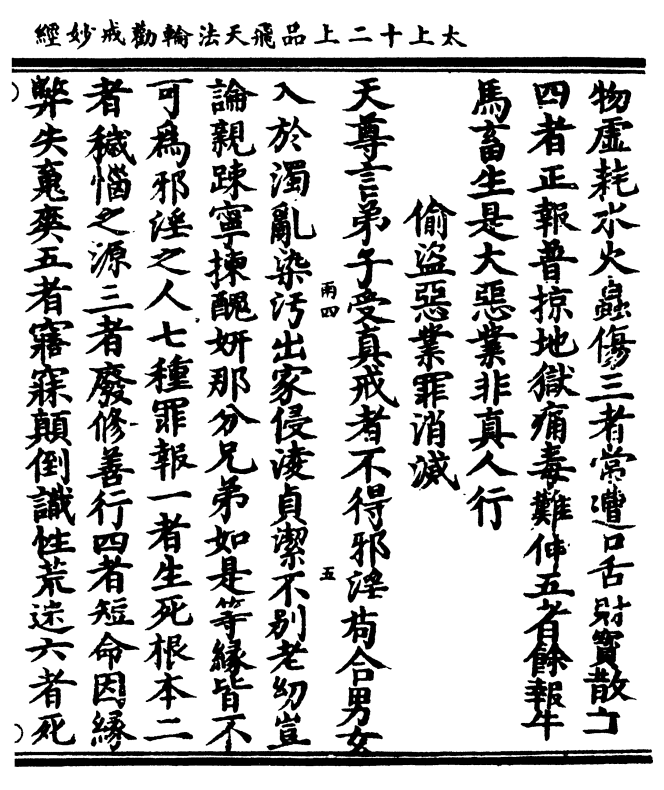 太上十二上品飛天法輪勸戒妙經
物虛耗水火蟲傷三者常遭口舌財寶散亡
四者正報普掠地獄痛毒難伸五者餘報牛
馬畜生是大惡業非真人行
偷盜惡業罪消滅
天尊言弟子受真戒者不得邪淫苟合男女
兩四
五
入於濁亂染汚出家侵淩貞潔不別老幼豈
論親踈寧揀醜妍那分兄弟如是等緣皆不
可爲邪淫之人七種罪報一者生死根本二
者穢惱之源三者廢修善行四者短命因緣
弊失䰟爽五者寤寐顛倒識性荒迷六者死